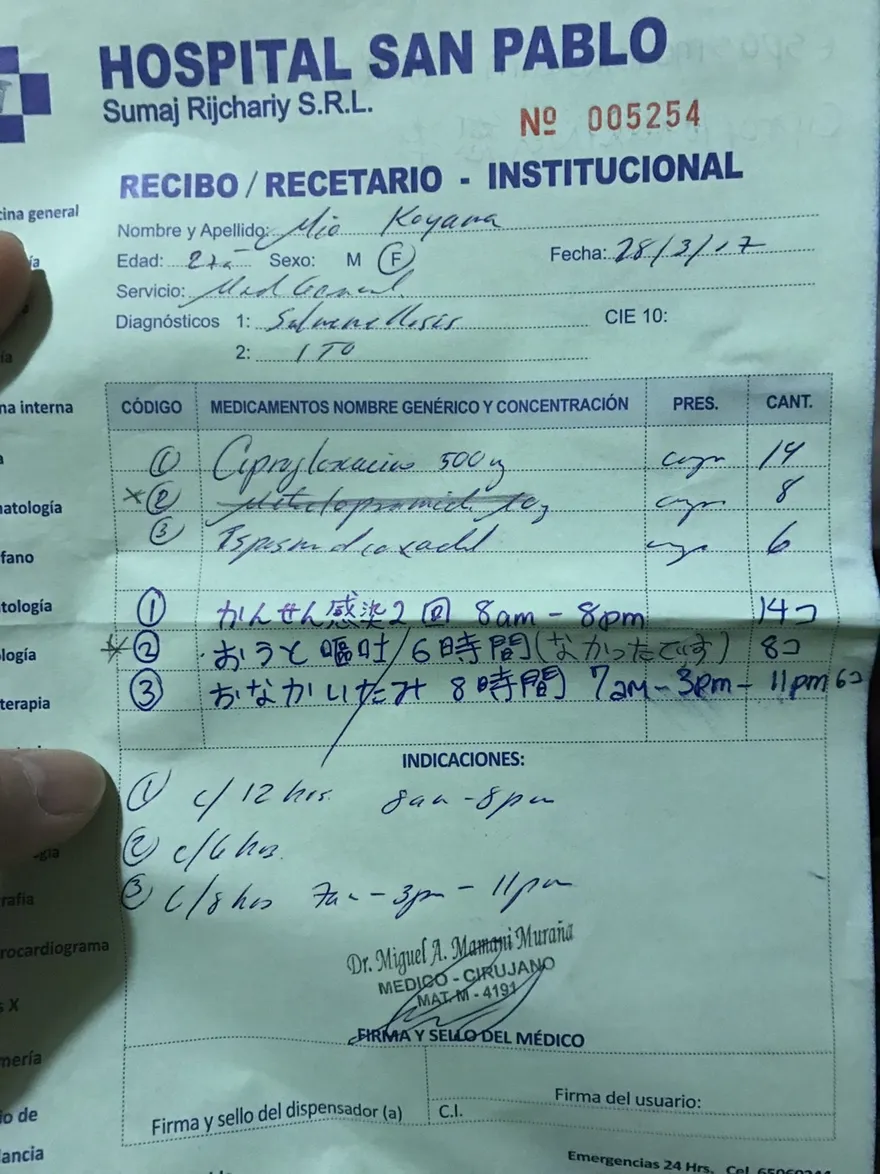 HOSPITAL SAN PABLO
Sumaj Rijchariy S.R.L.
Nº 005254
RECIBO / RECETARIO - INSTITUCIONAL
Nombre y Apellido: Mio Koyama
Edad: Sexo: M F Fecha: 28/3/17
Servicio: Med General
Diagnósticos 1: Salmonellosis CIE 10:
2:
CÓDIGO MEDICAMENTOS NOMBRE GENÉRICO Y CONCENTRACIÓN PRES. CANT.
① Ciprofloxacino 500 14
×② Metoclopramida 8
③ 6
① かんせん感染2回 8am - 8pm 14コ
② ・おうと嘔吐/6時間(なかったです) 8コ
③ おなかいたみ 8時間 7am - 3pm - 11pm 6コ
INDICACIONES:
① c/12 hrs. 8am - 8pm
② c/6 hrs.
③ c/8 hrs 7am - 3pm - 11pm
Dr. Miguel A. Mamani Muraña
MEDICO - CIRUJANO
MAT. M - 4191
FIRMA Y SELLO DEL MÉDICO
Firma y sello del dispensador (a) C.I. Firma del usuario:
Emergencias 24 Hrs. Cel.
cina general
na interna
natología
fano
tología
logía
terapia
-gía
rafía
rocardiograma
s X
mería
io de
lancia